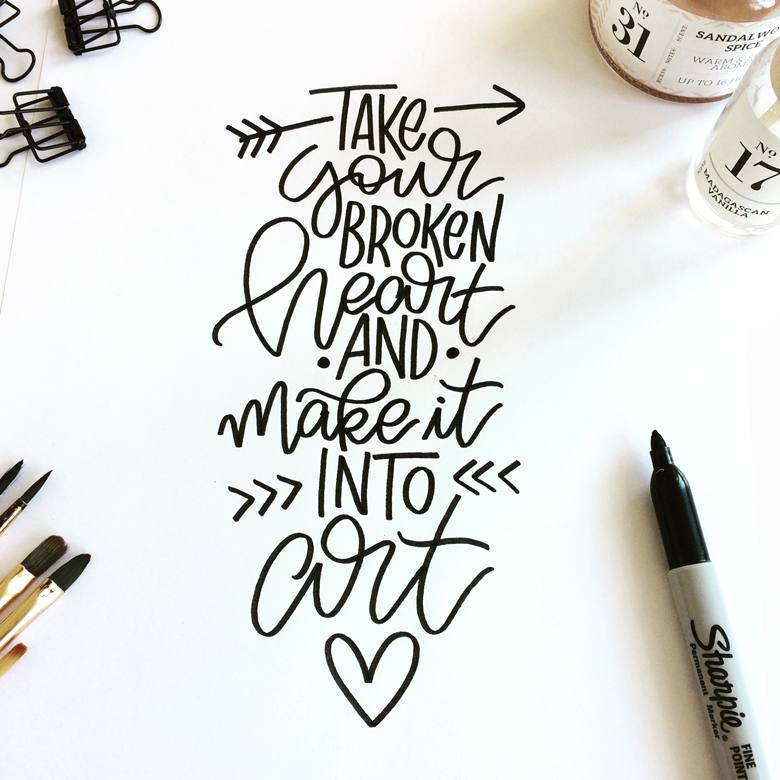 TAKE
your
BROKEN
heart
AND
make it
INTO
art
No
31
SANDALWO
SPICE
UP TO 16 H
No
17
MADAGASCAN
VANILLA
Sharpie
Permanent Marker
FINE
POINT